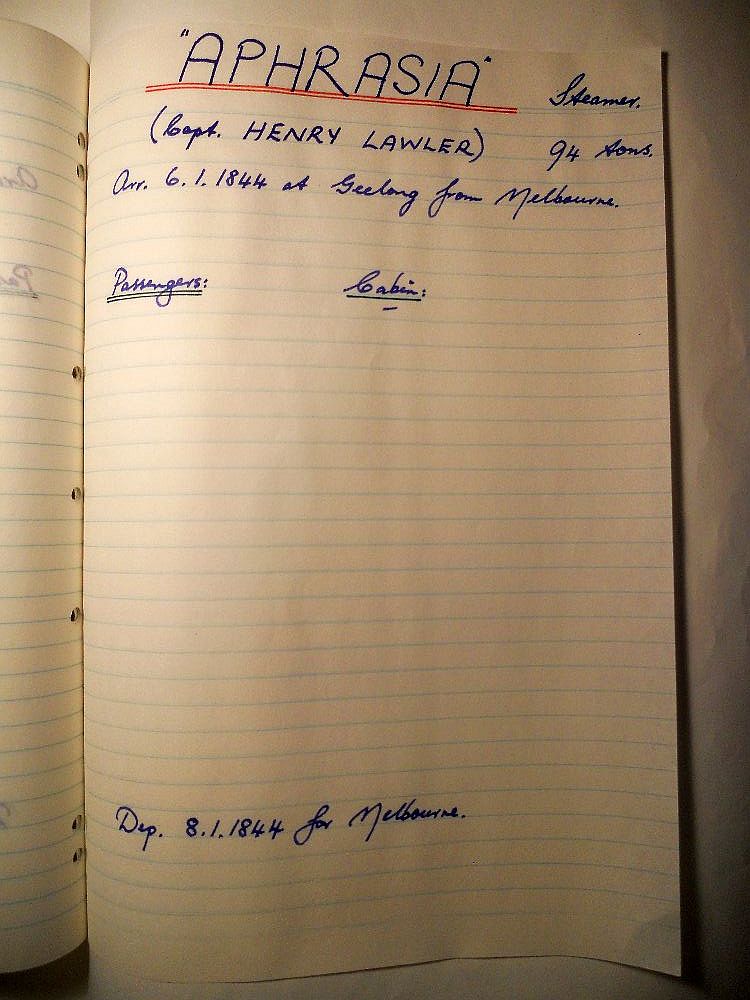 "APHRASIA" Steamer.
(Capt. HENRY LAWLER) 94 tons.
Arr. 6.1.1844 at Geelong from Melbourne.
Passengers: Cabin:
–
Dep. 8.1.1844 for Melbourne.